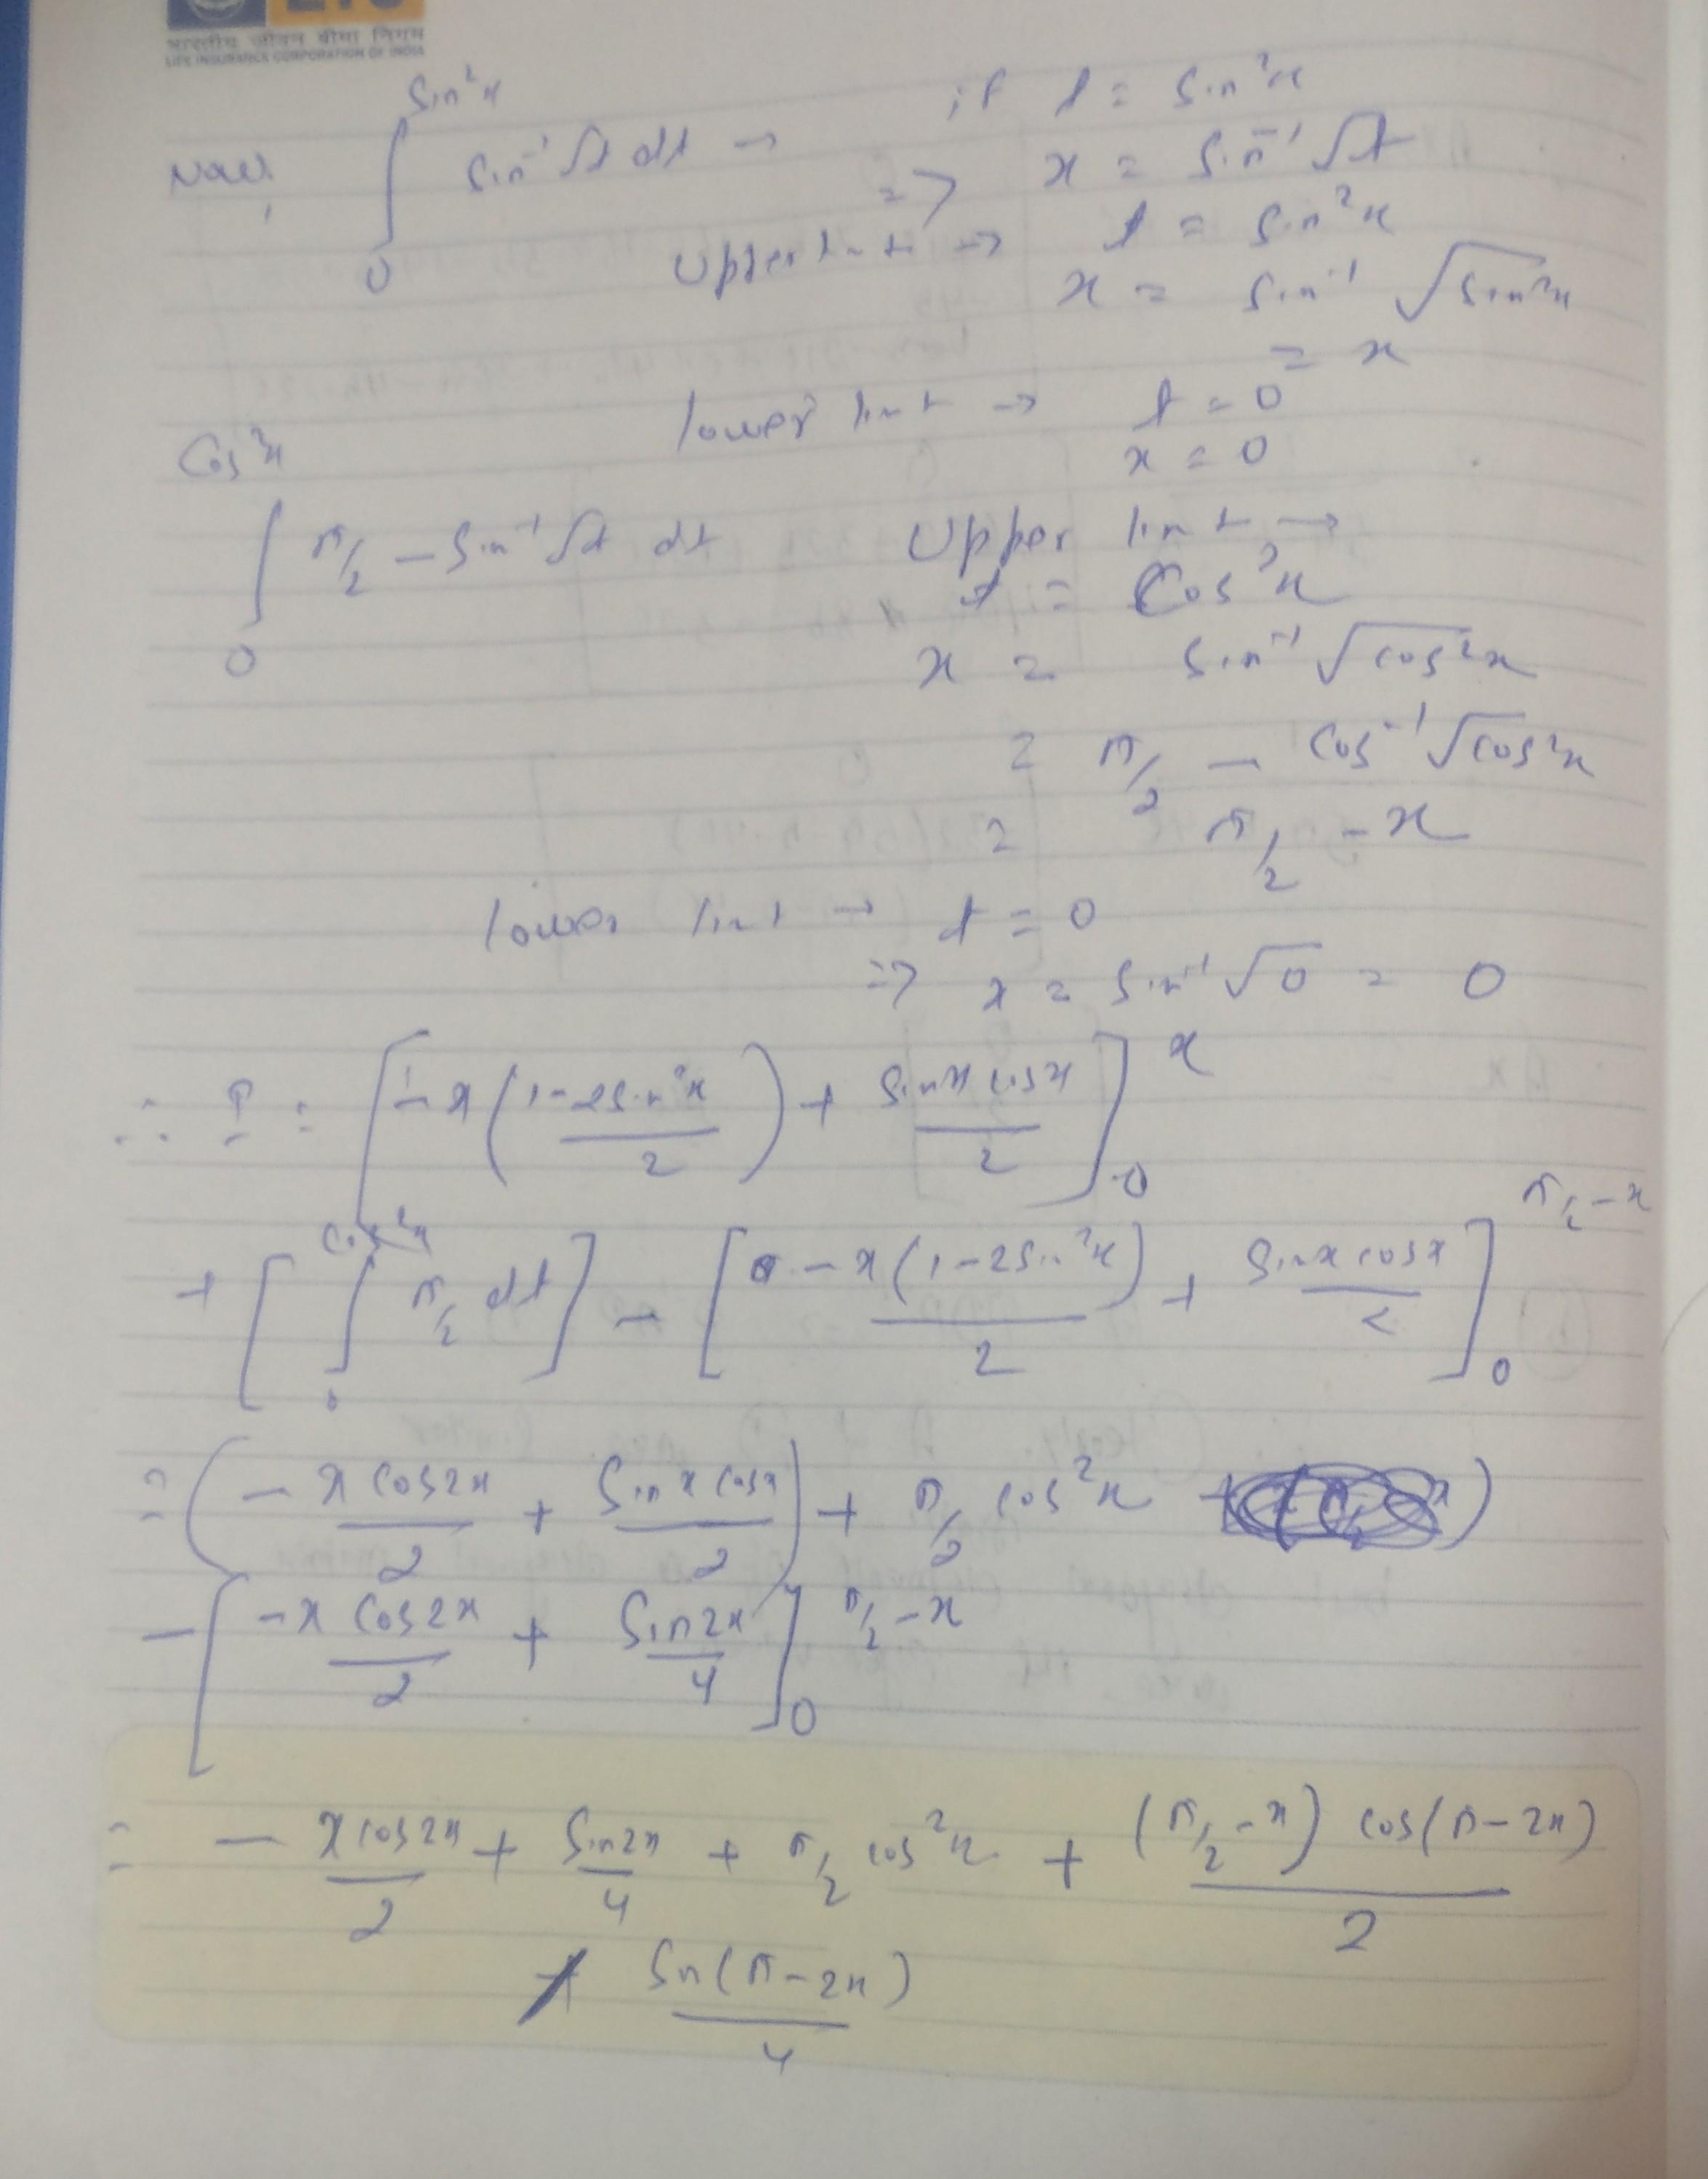 भारतीय जीवन बीमा निगम
LIFE INSURANCE CORPORATION OF INDIA
Now, ∫₀^(sin²x) sin⁻¹√t dt → if t = sin²x
=> x = sin⁻¹√t
Upper limit → t = sin²x
x = sin⁻¹√(sin²x)
= x
lower limit → t = 0
x = 0
∫₀^(cos²x) π/2 - sin⁻¹√t dt Upper limit →
t = cos²x
x = sin⁻¹√(cos²x)
= π/2 - cos⁻¹√(cos²x)
= π/2 - x
lower limit → t = 0
=> x = sin⁻¹√0 = 0
∴ I = [-x((1-2sin²x)/2) + (sinx cosx)/2]₀^x
+ [∫₀^(cos²x) π/2 dt] - [-x(1-2sin²x)/2 + (sinx cosx)/2]₀^(π/2-x)
= (-(x cos2x)/2 + (sinx cosx)/2) + π/2 cos²x
- [-(x cos2x)/2 + (sin2x)/4]₀^(π/2-x)
= -(x cos2x)/2 + (sin2x)/4 + π/2 cos²x + ((π/2-x) cos(π-2x))/2
(sn(π-2x))/4